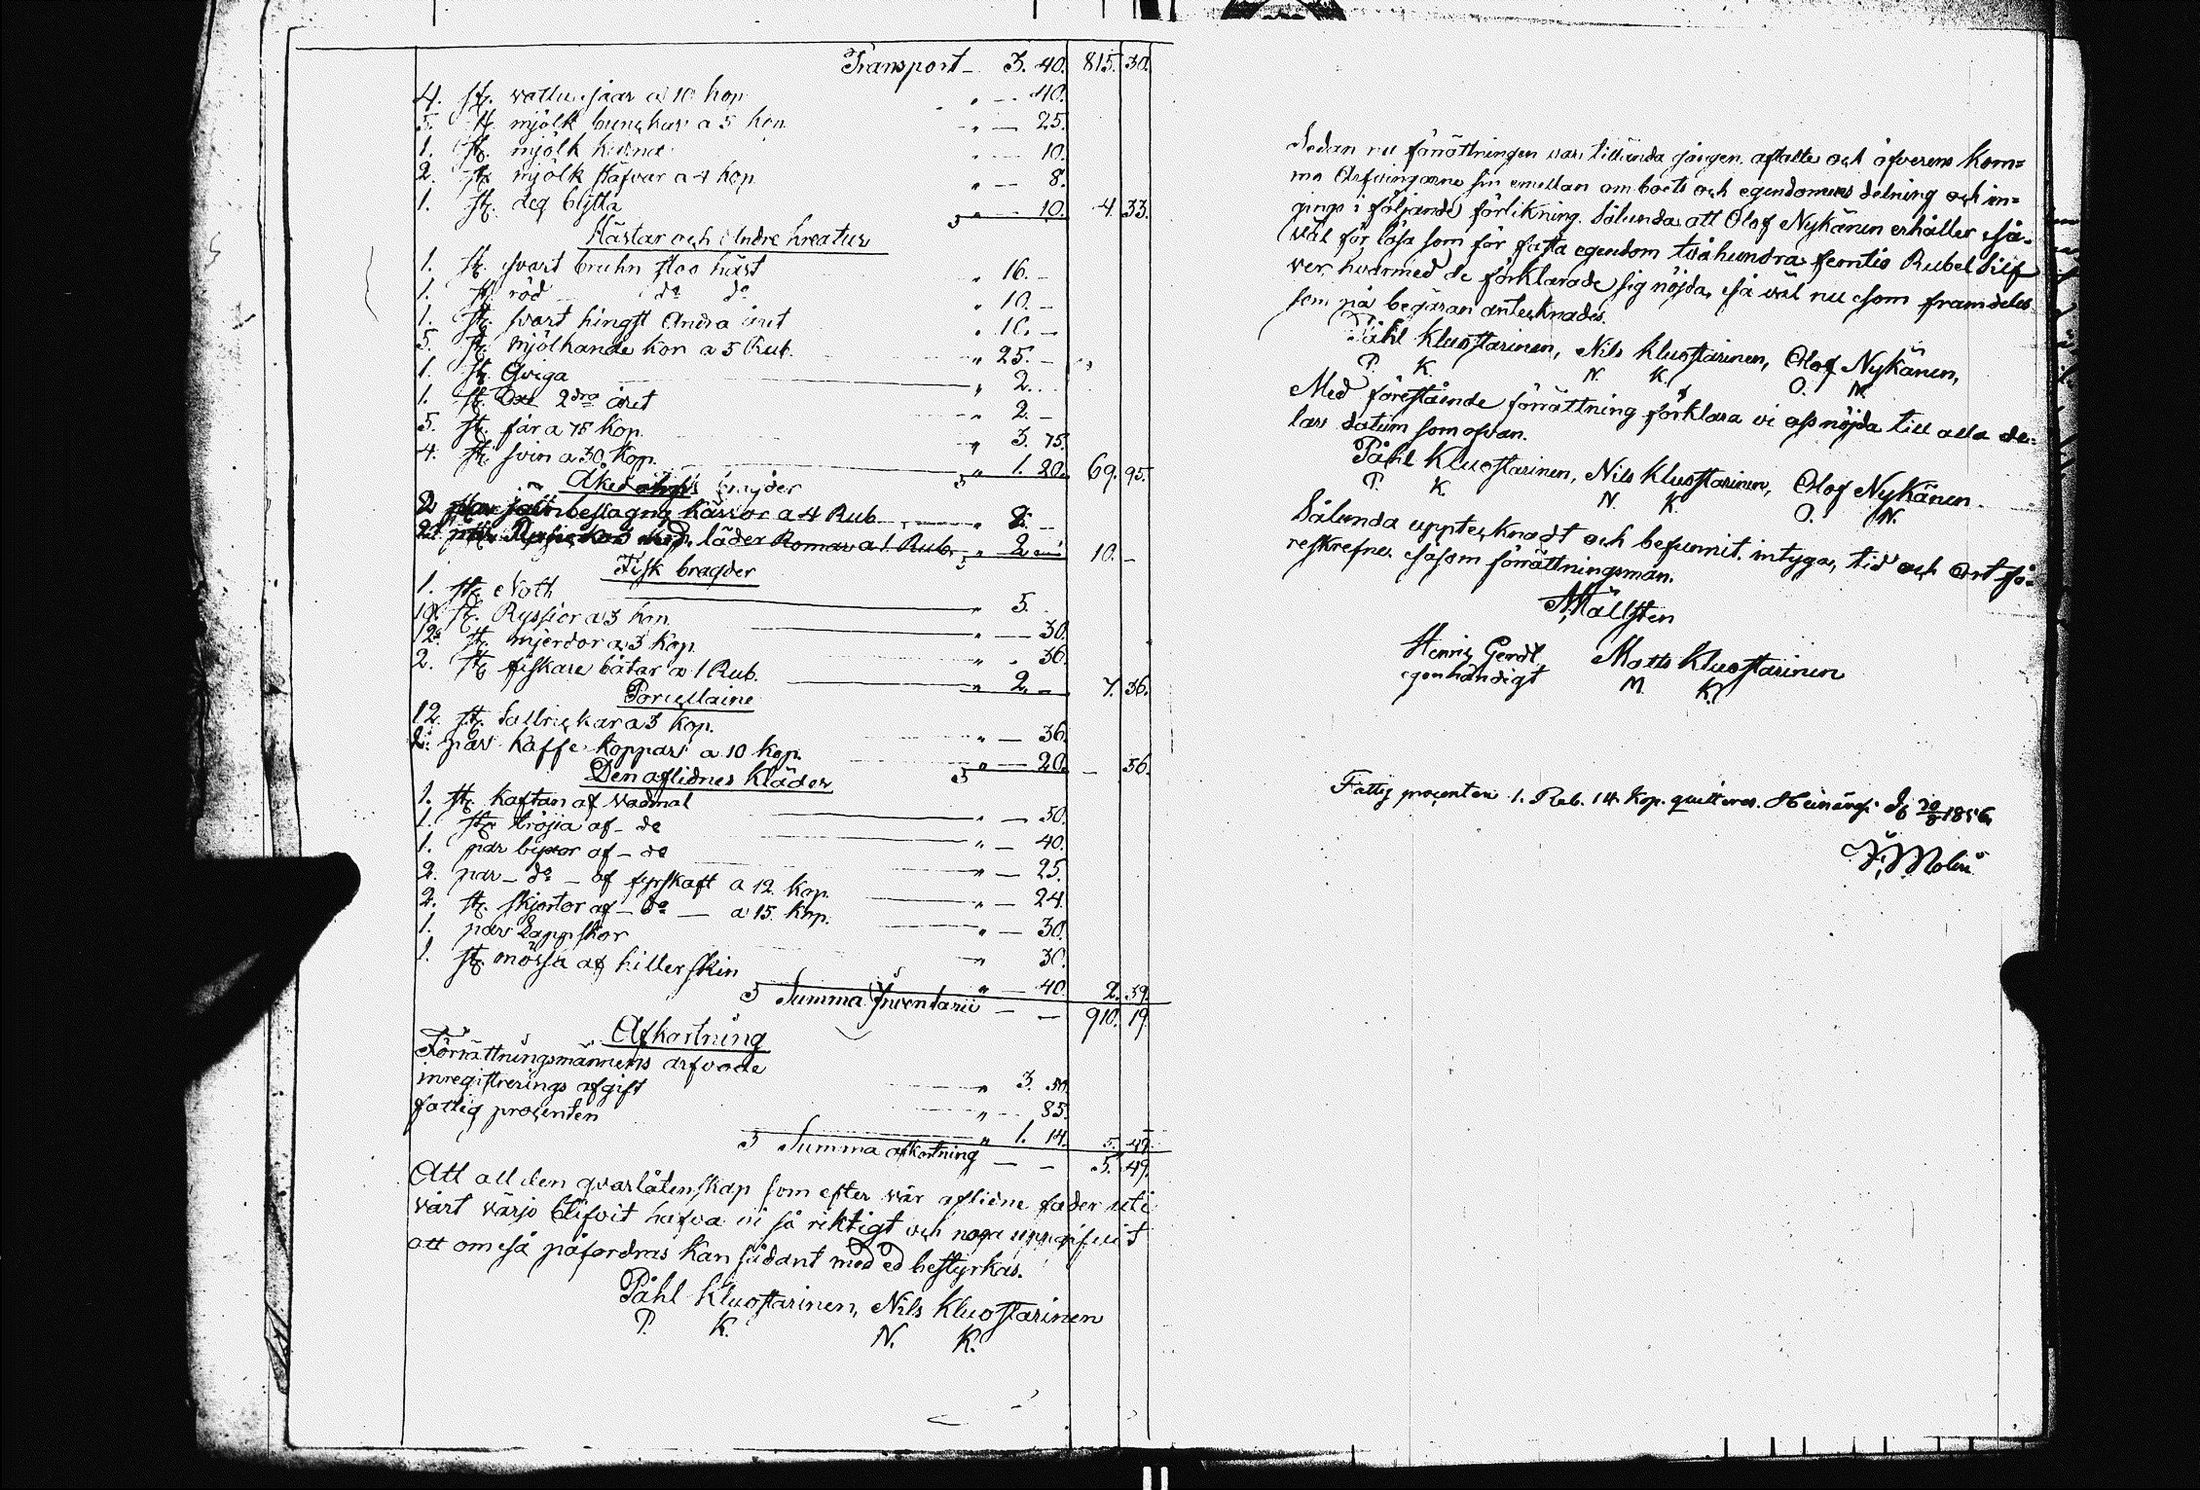 Transport — 3. 40. 815. 30.
4. st. vattu såar a 10 kop. " — 40.
5. st. mjölk bunckar a 5 kop. " — 25.
1. st. mjölk kärna " — 10.
2. st. mjölk stäfvor a 4 kop. " — 8.
1. st. deg bytta " — 10. 4. 33.
Hästar och Andre kreatur
1. st. svart bruhn stoo häst " 16. —
1. st. röd do do " 10. —
1. st. svart hingst Andra året " 10. —
5. st. mjölkande kor a 5 Rub. " 25. —
1. st. Qviga " 2. —
1. st. Oxe 2dra året " 2. —
5. st. får a 75 kop. " 3. 75.
4. st. svin a 30 kop. " 1. 20. 69. 95.
Åkedons bragder
2 par järnbeslagna kärror a 4 Rub. " 8. —
2 läder Romar a 1 Rub. " 2. — 10. —
Fisk bragder
1. st. Noth " 5.
10. st. Ryssior a 3 kop. " — 30.
12. st. mjerdor a 3 kop. " — 36.
2. st. fiskare båtar a 1 Rub. " 2. — 7. 36.
Porcellaine
12. st. Tallrickar a 3 kop. " — 36.
2. par kaffe koppar a 10 kop. " — 20. — 56.
Den aflidnes kläder
1. st. kaftan af vadmal " — 50.
1. st. tröjia af — do " — 40.
1. par byxor af — do " — 25.
2. par — do — af fyrskaft a 12 kop. " — 24.
2. st. skjortor af — do — a 15 kop. " — 30.
1. par Lapp skor " 30.
1. st. mössa af hillerskin " — 40. 2. 39.
S Summa Inventarii — — 910. 19.
Afkortning
Förrättningsmännens arfvode " 3. 50.
inregistrerings afgift " — 85.
fattig procenten " 1. 14. 5. 49.
S Summa afkortning — — 5. 49.
Att all den qvarlåtenskap som efter vår aflidne fader uti
vårt värjo blifvit hafva vi så riktigt och noga uppgifvit
att om så påfordras kan sådant med ed bestyrkas.
Påhl Kluostarinen, Nils Kluostarinen
P. K. N. K.
Sedan nu förrättningen var tillända gången, aftalte och öfverens kom=
mo Arfvingarne sin emellan om boets och egendomens delning och in=
gingo i följande förlikning. Sålunda att Olof Nykänen erhåller så=
väl för lösa som för fasta egendom två hundra femtio Rubel Silf
ver, hvarmed de förklarade sig nöjda, så väl nu som framdeles
som på begäran antecknades.
Påhl Kluostarinen, Nils Kluostarinen, Olof Nykänen,
P. K. N. K. O. N.
Med förestående förrättning förklara vi oss nöjda till alla de=
lar datum som ofvan.
Påhl Kluostarinen, Nils Kluostarinen, Olof Nykänen.
P. K. N. K. O. N.
Sålunda uppteknadt och befunnit, intyga, tid och Ort fö=
reskrefne, såsom förrättningsmän.
N. Hällsten
Henric Gendt Matts Kluostarinen
egenhändigt M. K.
Fattig procenten 1. Rub. 14. Kop. quitteras.